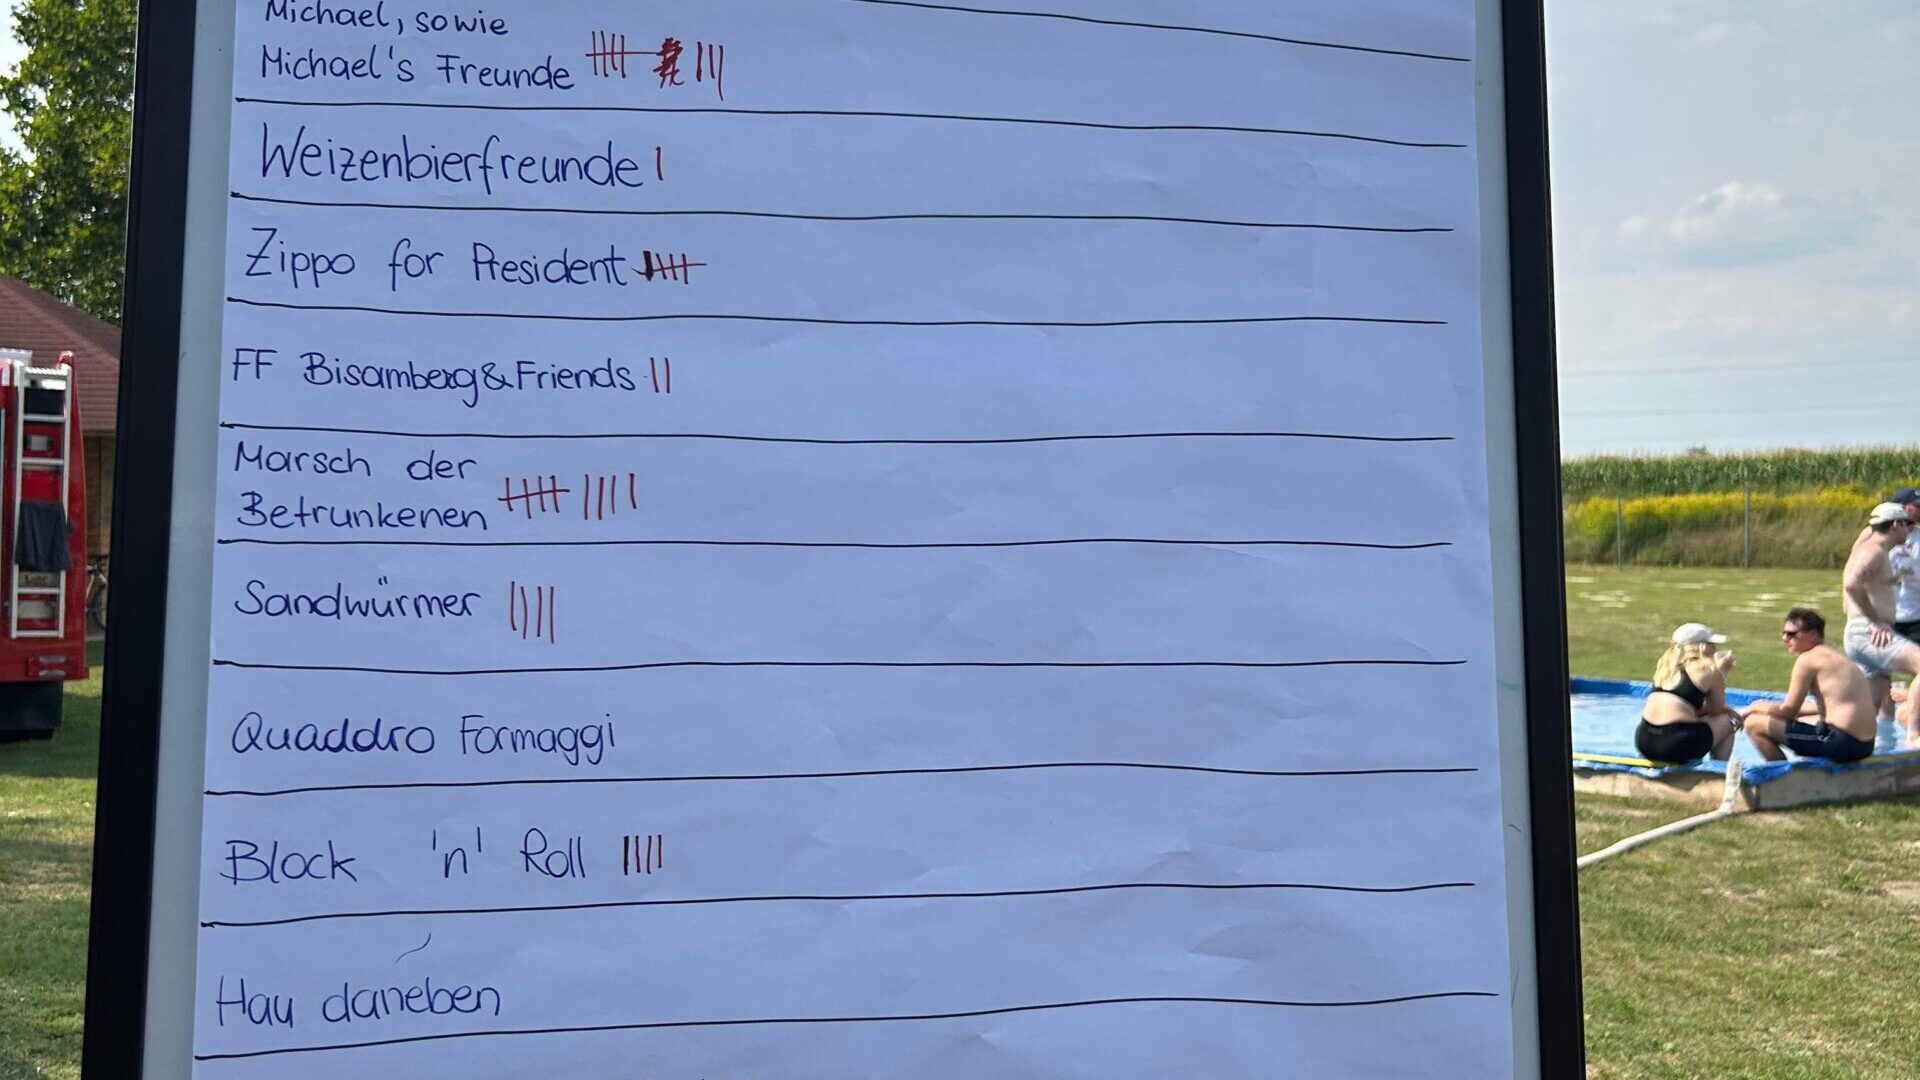 Michael, sowie
Michael's Freunde
Weizenbierfreunde
Zippo for President
FF Bisamberg&Friends
Marsch der
Betrunkenen
Sandwürmer
Quaddro Formaggi
Block 'n' Roll
Hau daneben